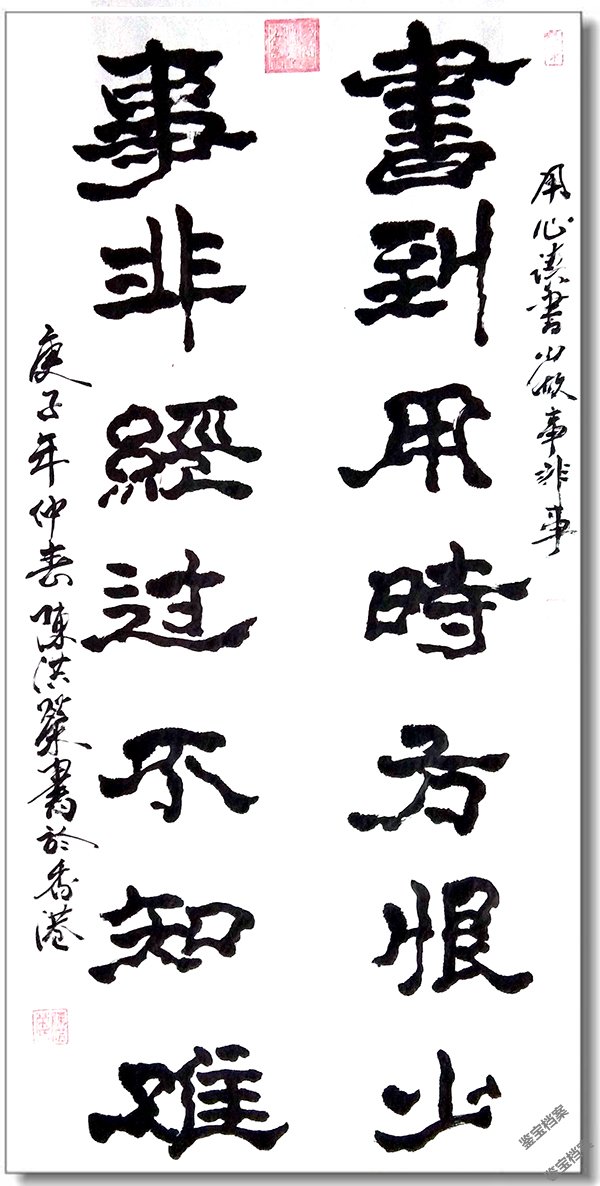 用心读書 事非事
書到用時方恨少
事非經过不知难
庚子年仲春 陳洪 書於香港
鉴宝档案
鉴宝档案